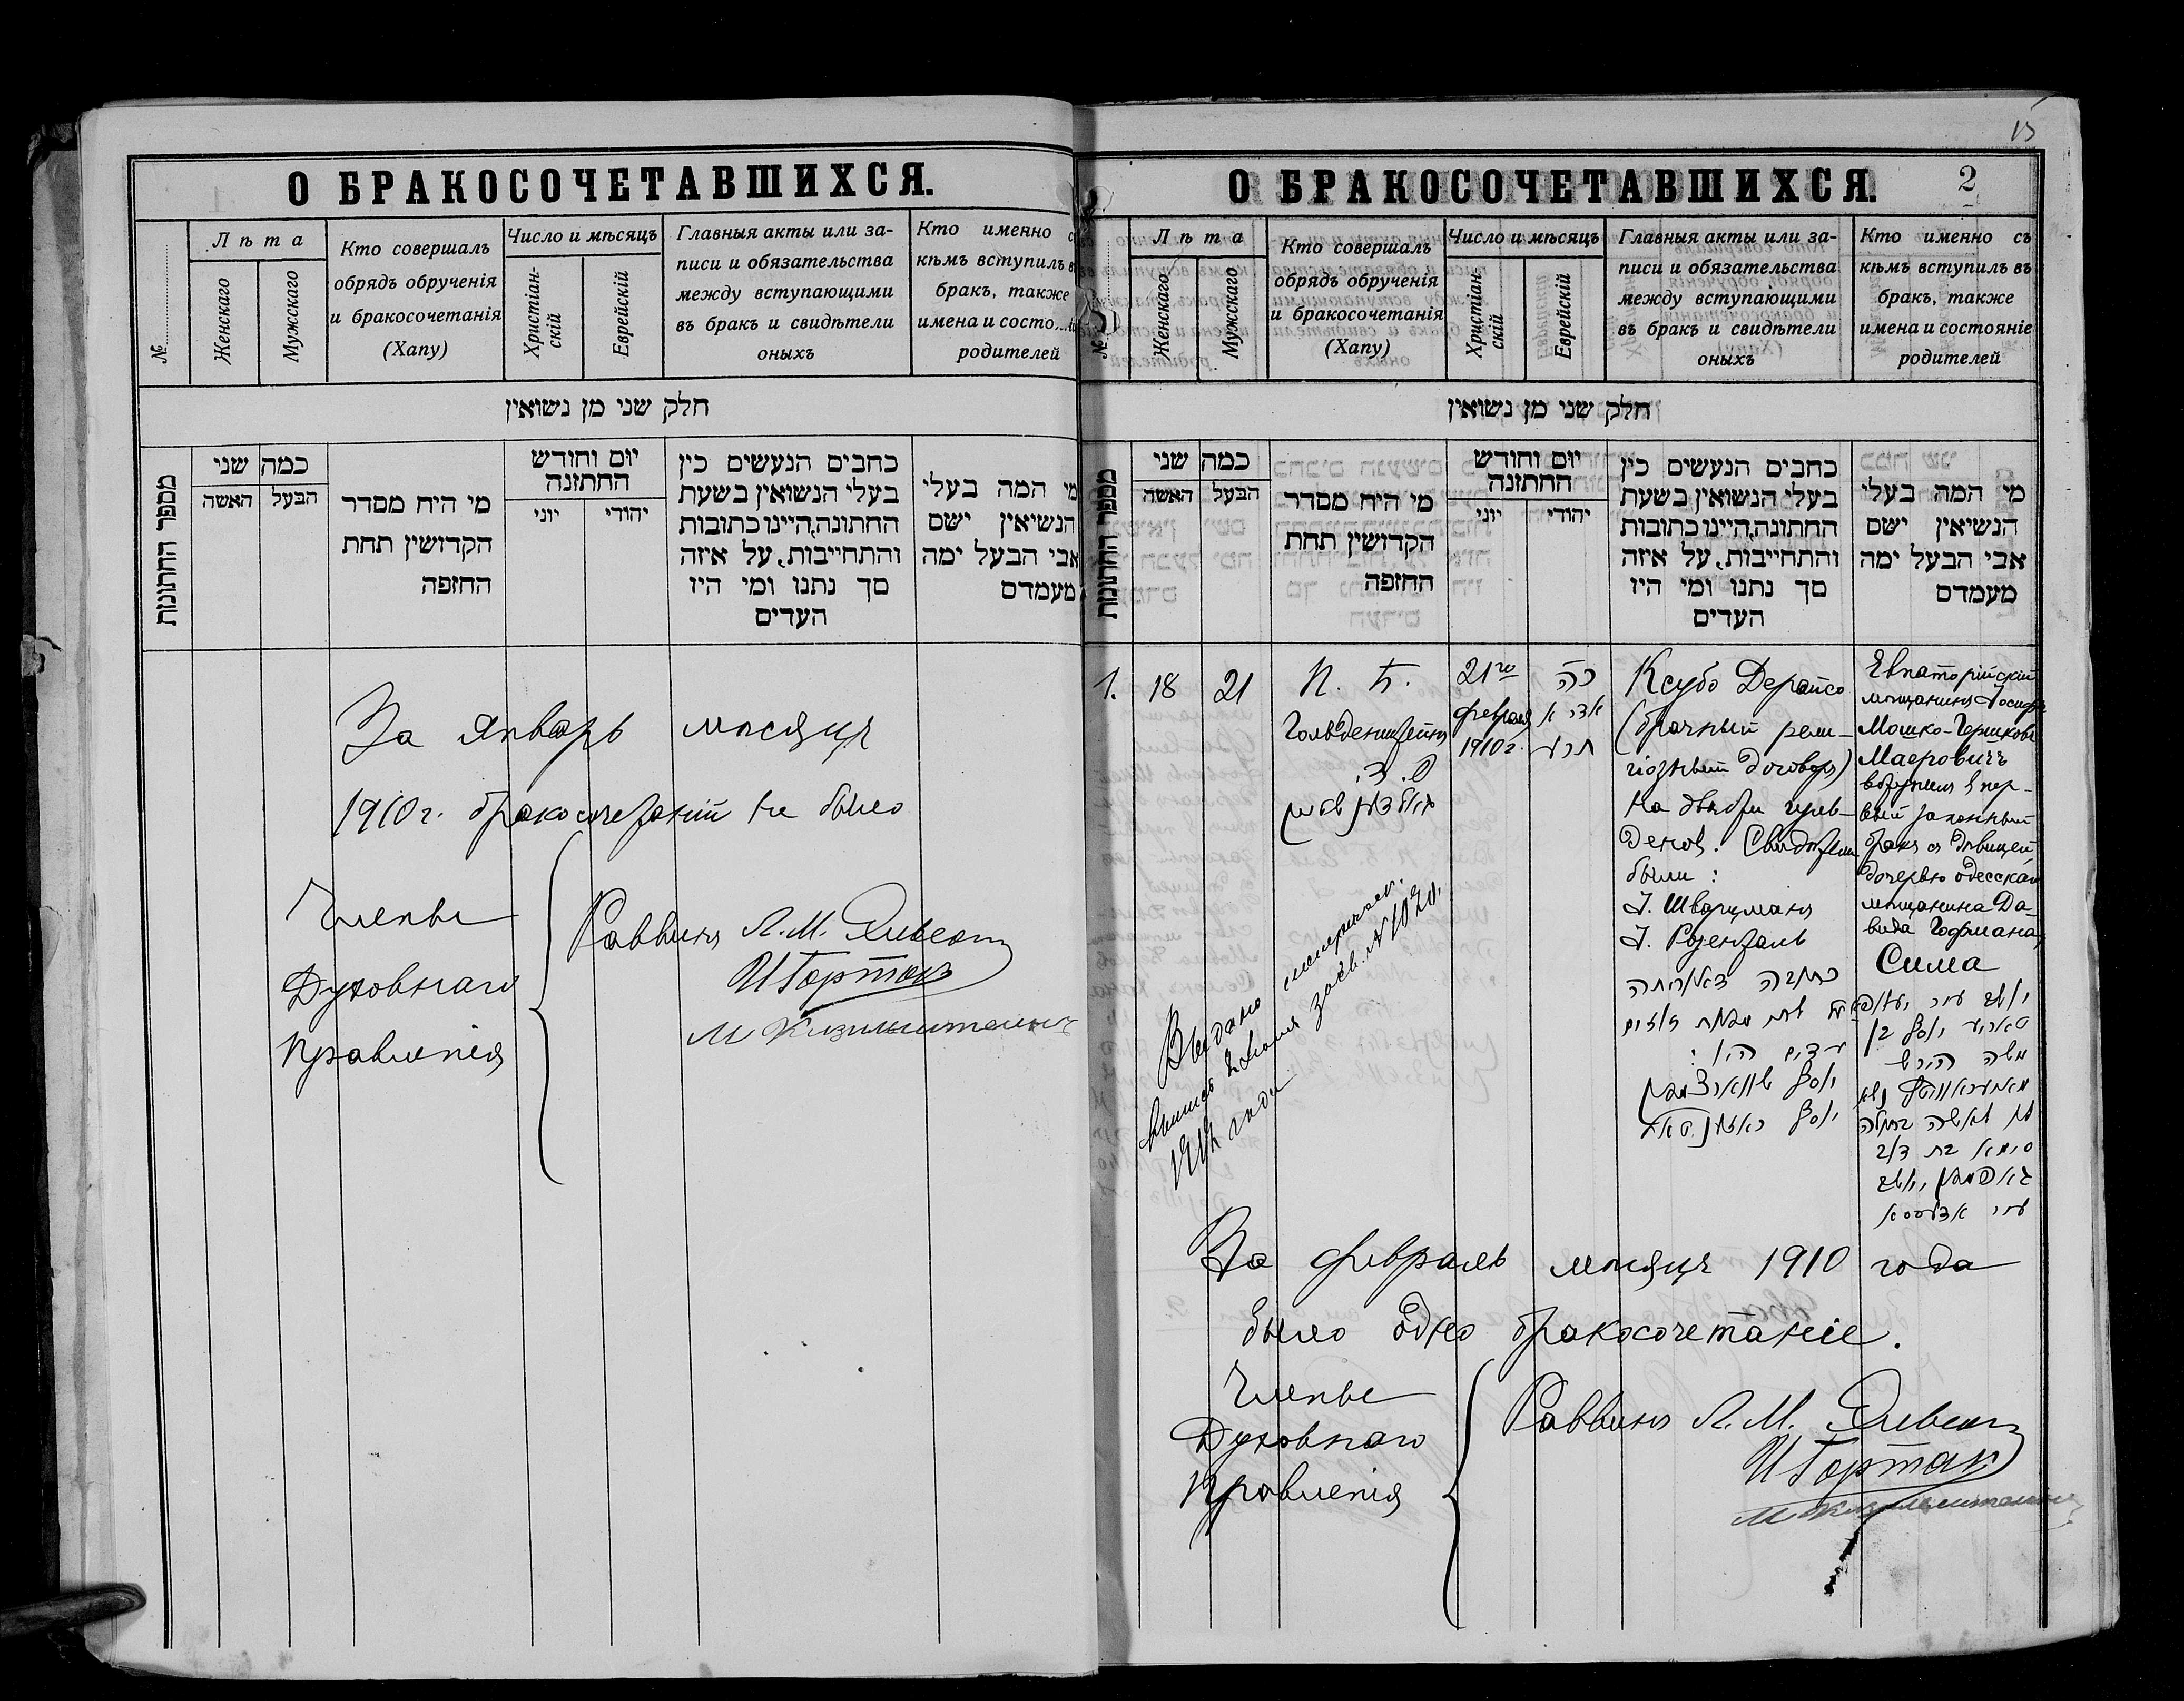 О БРАКОСОЧЕТАВШИХСЯ.
№
Лѣта
Женскаго
Мужскаго
Кто совершалъ
обрядъ обрученія
и бракосочетанія
(Хапу)
Число и мѣсяцъ
Христіан-
скій
Еврейскій
Главныя акты или за-
писи и обязательства
между вступающими
въ бракъ и свидѣтели
оныхъ
Кто именно
кѣмъ вступилъ
бракъ, также
имена и состо
родителей
חלק שני מן נשואין
מספר החתונות
כמה שני
האשה
הבעל
מי היח מסדר
הקדושין תחת
החזפה
יום וחודש
החתזנה
יוני
יהודי
כחבים הנעשים כין
בעלי הנשואין בשעת
החתונה, היינו כתובות
והתחייבות, על איזה
סך נתנו ומי היו
העדים
מי המה בעלי
הנשיאין ישם
אבי הבעל ימה
מעמדם
За январь мѣсяцъ
1910 г. бракосочетаній не было
Члены
Духовнаго
Правленія
Раввинъ Л. М.
И Гортак
15
О БРАКОСОЧЕТАВШИХСЯ.
2
№
Лѣта
Женскаго
Мужскаго
Кто совершалъ
обрядъ обрученія
и бракосочетанія
(Хапу)
Число и мѣсяцъ
Христіан-
скій
Еврейскій
Главныя акты или за-
писи и обязательства
между вступающими
въ бракъ и свидѣтели
оныхъ
Кто именно съ
кѣмъ вступилъ въ
бракъ, также
имена и состояніе
родителей
חלק שני מן נשואין
מספר החתונות
כמה שני
האשה
הבעל
מי היח מסדר
הקדושין תחת
החזפה
יום וחודש
החתזנה
יוני
יהודי
כחבים הנעשים כין
בעלי הנשואין בשעת
החתונה, היינו כתובות
והתחייבות, על איזה
סך נתנו ומי היו
העדים
מי המה בעלי
הנשיאין ישם
אבי הבעל ימה
מעמדם
1.
18
21
П. Б.
Гольденштейнъ
21го
февраля
1910 г.
כה
אדר א
תרע
Ксубо Дерайсо
(брачный рели-
гіозный договоръ)
на двѣсти гуль-
денов. Свидѣтели
были:
І. Шварцманъ
І. Розенталь
כתובה דאורייתא
עדים היו:
יוסף שווארצמאן
יוסף ראזענטאל
Евпаторійскій
мѣщанинъ Іосифъ
Мошко-Гершковъ
Маеровичъ
вступилъ в пер-
вый законный
бракъ съ дѣвицей,
дочерью одесскаго
мѣщанина Да-
вида Гофмана,
Сима
יוסף בן
משה הירש
סימא בת דוד
גאפמאן יושב
עיר אדעססא
Выдано метрическ.
выпись 2 Іюля за св. № 1020,
1914 года
За февраль мѣсяцъ 1910 года
было одно бракосочетаніе.
Члены
Духовнаго
Правленія
Раввинъ Л. М.
И Гортак